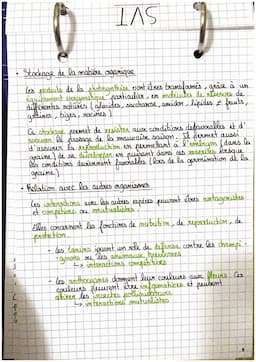 SVT
- Stockage de la matière organique
Les produits de la photosynthèse sont alors transformés, grâce à un
équipement enzymatique particulier, en molécules de réserves de
différentes natures (glucides, saccharose, amidon, lipides & fruits,
graines, tiges, racines)
Ce stockage permet de résister aux conditions défavorables et d'
assurer le passage de la mauvaise saison. Il permet aussi
d'assurer la reproduction en permettant à l'embryon (dans la
graine) de se développer en puisant dans ces réserves lorsque
les conditions deviennent favorables (lors de la germination de la
graine)
- Relation avec les autres organismes
Les interactions avec les autres espèces peuvent être antagonistes
et compétitives ou mutualistes.
Elles concernent les fonctions de nutrition, de reproduction, de
protection.
- les tanins jouent un rôle de défense contre les champi-
gnons ou les animaux herbivores
↳ interactions compétitives
- les anthocyanes donnent leur couleurs aux fleurs. Ces
couleurs peuvent être informatives et peuvent
attirer les insectes pollinisateurs
↳ interactions mutualistes